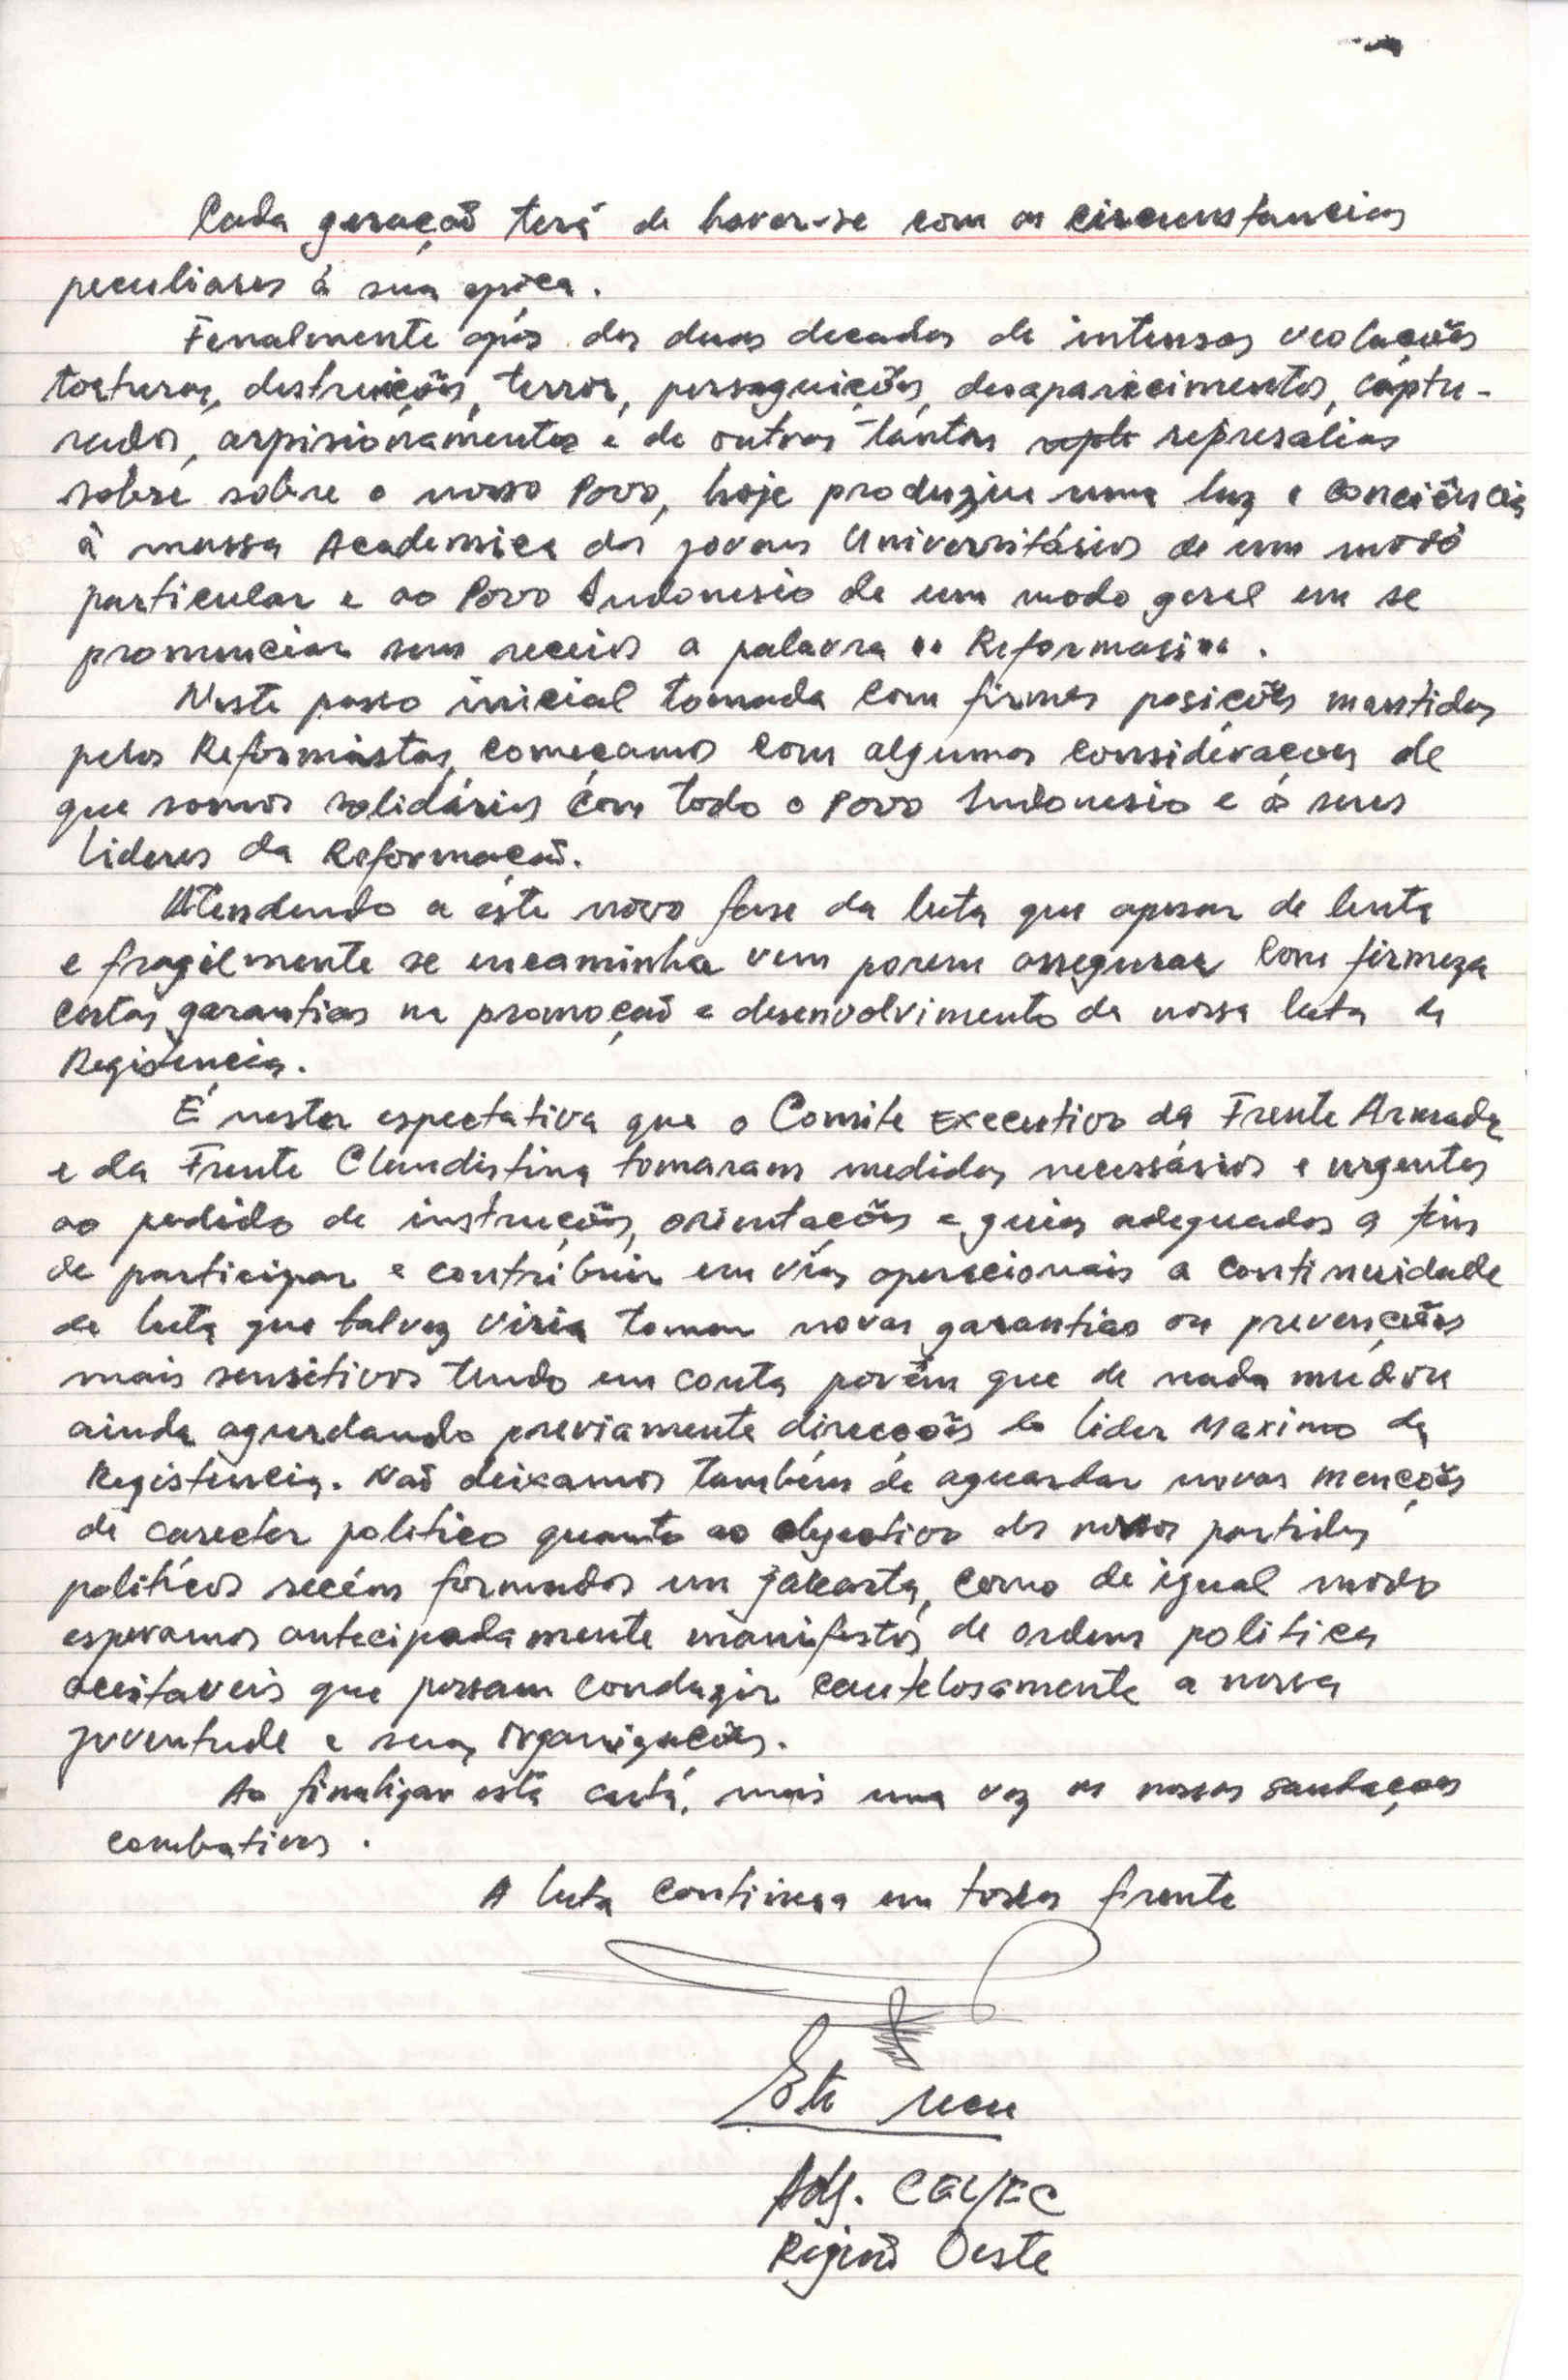 Cada geração terá de haver-se com as circunstancias
peculiares à sua época.
Fenalmente após das duas decadas de intensas veolações
torturas, destruições, terror, perseguições, desaparecimentos, captu-
rados, arpisionamentos e de outras tantas represalias
sobre sobre o nosso Povo, hoje produziu uma luz e conciência
à massa Academica dos jovens Universitários de um modo
particular e ao Povo Indonesio de um modo geral em se
pronunciar sem receios a palavra "Reformasi".
Neste passo inicial tomada com firmes posições mantidas
pelos Reformistas, começamos com algumas considerações de
que somos solidários com todo o Povo Indonesio e à seus
Lideres da Reformação.
Atendendo a éste novo fase da luta que apesar de lenta
e fragilmente se encaminha vem porem assegurar com firmeza
certas garantias na promoção e desenvolvimento da nossa luta de
Registencia.
É nesta espectativa que o Comite Executivo da Frente Armada
e da Frente Clandistina tomaram medidas necessários e urgentes
ao pedido de instruções, orientações e guias adequados a fim
de participar e contribuir em vias operacionais a continuidade
de luta que talvez viria tomar novas garantias ou prevenções
mais sensitivos tendo em conta porém que de nada mudou
ainda aguardando previamente direcções do lider Maximo da
Registencia. Naõ deixamos também de aguardar novas menções
de carecter politico quanto ao objectivo dos nossos partidos
politicos recém formados em Jakarta, como de igual modo
esperamos antecipadamente manifestos de ordem politica
aceitaveis que possam conduzir cautelosamente a nossa
juventude e suas organizações.
Ao finalizar esta carta, mais uma vez as nossas saudações
combativas.
A luta continua em todas frente
Adj. CEL/FC
Região Oeste